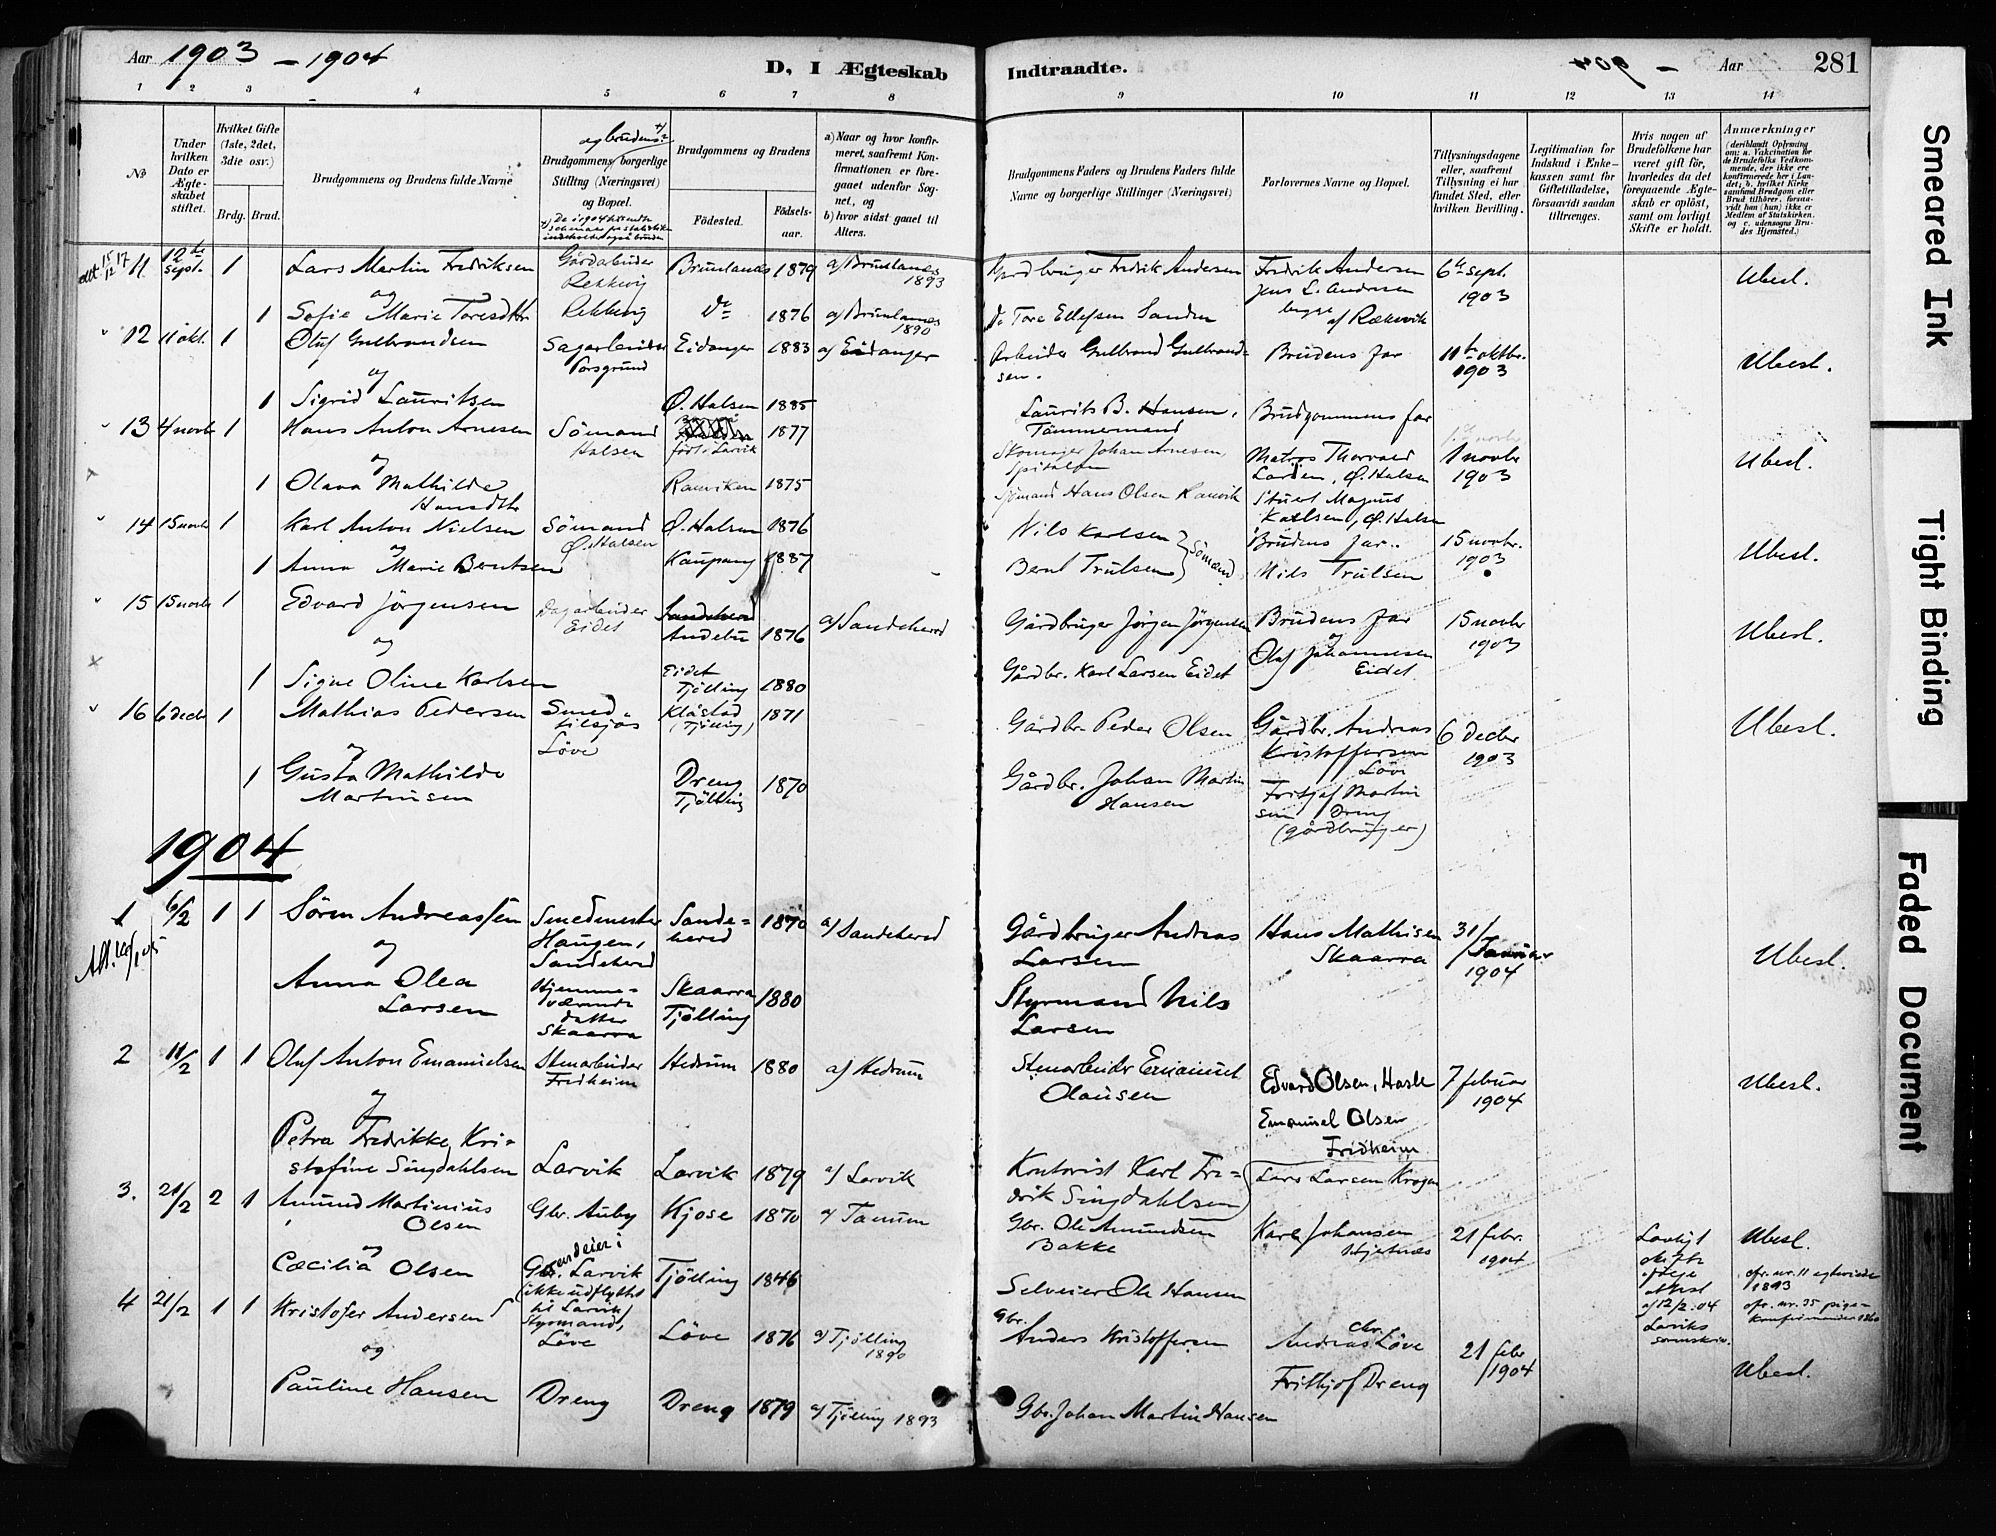 Aar 1903 - 1904
D, I Ægteskab
Indtraadte.
- 904
Aar
281
1 2 3 4 5 6 7 8 9 10 11 12 13 14
No
Under hvilken Dato er Ægteskabet stiftet.
Hvilket Gifte (1ste, 2det, 3die osv.)
Brdg. Brud.
Brudgommens og Brudens fulde Navne
og brudens
Brudgommens borgerlige Stilling (Næringsvei) og Bopæl.
Brudgommens og Brudens
Fødested.
Fødselsaar.
a) Naar og hvor konfirmeret, saafremt Konfirmationen er foregaaet udenfor Sognet, og
b) hvor sidst gaaet til Alters.
Brudgommens Faders og Brudens Faders fulde Navne og borgerlige Stillinger (Næringsvei)
Forlovernes Navne og Bopæl.
Tillysningsdagene eller, saafremt Tillysning ei har fundet Sted, efter hvilken Bevilling.
Legitimation for Indskud i Enkekassen samt for Giftetilladelse, forsaavidt saadan tiltrænges.
Hvis nogen af Brudefolkene har været gift før, hvorledes da det foregaaende Ægteskab er opløst, samt om lovligt Skifte er holdt.
Anmærkninger (deriblandt Oplysning om: a. Vakcination for de Brudefolks Vedkommende, der ikke ere konfirmerede her i Landet; b. hvilket Kirkesamfund Brudgom eller Brud tilhører, forsaavidt han (hun) ikke er Medlem af Statskirken, og c. udensogns Brudes Hjemsted.)
11 12te Sept. 1 Lars Martin Fredriksen Gårdarbeider Rekkevig Brunlanes 1879 a) Brunlanes 1893 Gårdbruger Fredrik Andersen Fredrik Andersen 6te sept. 1903 Ubesl.
og
Jens L. Andersen
1 Sofie Marie Toresdtr Rekkevig do 1876 a) Brunlanes 1890 do Tore Ellefsen Sanden begge af Rækevik
12 11 okt. 1 Oluf Gulbrandsen Sagarbeider Porsgrund Eidanger 1883 a) Eidanger Arbeider Gulbrand Gulbrandsen. Brudens far 11te oktbr. 1903 Ubesl.
og
1 Sigrid Lauritsen Ø. Halsen 1885 Laurits B. Hansen, Tömmermand Brudgommens far
13 4 novbr 1 Hans Anton Arnesen Sömand Halsen født i Larvik 1877 Skomager Johan Arnesen, Matros Thorvald Larsen, Ø. Halsen 1 novbr 1903 Ubesl.
og
1 Olava Mathilde Hansdtr Ranviken 1875 Sjömand Hans Olsen Ranvik Stuert Magnus Karlsen, Ø. Halsen
14 15 novbr 1 Karl Anton Nielsen Sömand Ø. Halsen Ø. Halsen 1876 Nils Karlsen Brudens far 15 novbr. 1903 Ubesl.
og
1 Anna Marie Berntsen Kaupang 1887 Bernt Trulsen Sömænd Nils Trulsen
15 15 novbr 1 Edvard Jörgensen Dagarbeider Eidet Sandeherred Andebu 1876 a) Sandeherred Gårdbruger Jörgen Jörgensen Brudens far 15 novbr 1903 Ubesl.
og
og
1 Signe Oline Karlsen Eidet Tjölling 1880 Gårdbr. Karl Larsen Eidet Oluf Johannesen Eidet
16 6 decbr 1 Mathias Pedersen Smed tilsjös Löve Klåstad (Tjölling) 1871 Gårdbr. Peder Olsen Gårdbr. Andreas Kristoffersen Löve 6 decbr 1903 Ubesl.
og
1 Gusta Mathilde Martinsen Dreng Tjölling 1870 Gårdbr. Johan Martin Hansen Fritjof Martinsen Dreng (gårdbruger)
1904
1 6/2 1 1 Sören Andreassen Smedmester Haugen, Sandeherred Sandeherred 1870 a) Sandeherred Gårdbruger Andreas Larsen Hans Mathisen Skaarra 31/ Januar 1904 Ubesl.
og
Anna Olea Larsen Hjemmeværende datter Skaarra Skaarra Tjölling 1880 Styrmand Nils Larsen
2 11/2 1 1 Oluf Anton Emanuelsen Stenarbeider Fridheim Hedrum 1880 a) Hedrum Stenarbeider Emanuel Olausen Edvard Olsen, Hasle 7 februar 1904 Ubesl.
og
Emanuel Olsen Fridheim
Petra Fredrikke Kristofine Singdahlsen Larvik Larvik 1879 a) Larvik Kontorist Karl Fredrik Singdahlsen Lars Larsen Krogen
3. 21/2 2 1 Amund Martinius Olsen Gbr. Auby Kjose 1870 a) Tanum Gbr. Ole Amundsen Bakke Karl Johansen 21 febr. 1904 Lovligt skifte ifølge attest af 12/2.04 Larviks sorenskr. Ubesl.
og
Cæcilia Olsen Gbr. Larvik (ikke udflyttet til Larvik) Tjölling 1846 Selveier Ole Hansen
4 21/2 1 1 Kristofer Andersen Styrmand, Löve Löve 1876 a) Tjölling 1890 Gbr. Anders Kristoffersen Andreas Chr. Löve 21 febr 1904 Ubesl.
og
Pauline Hansen Dreng Dreng 1879 a) Tjölling 1893 Gbr. Johan Martin Hansen Frithjof Dreng
Smeared Ink
Tight Binding
Faded Document